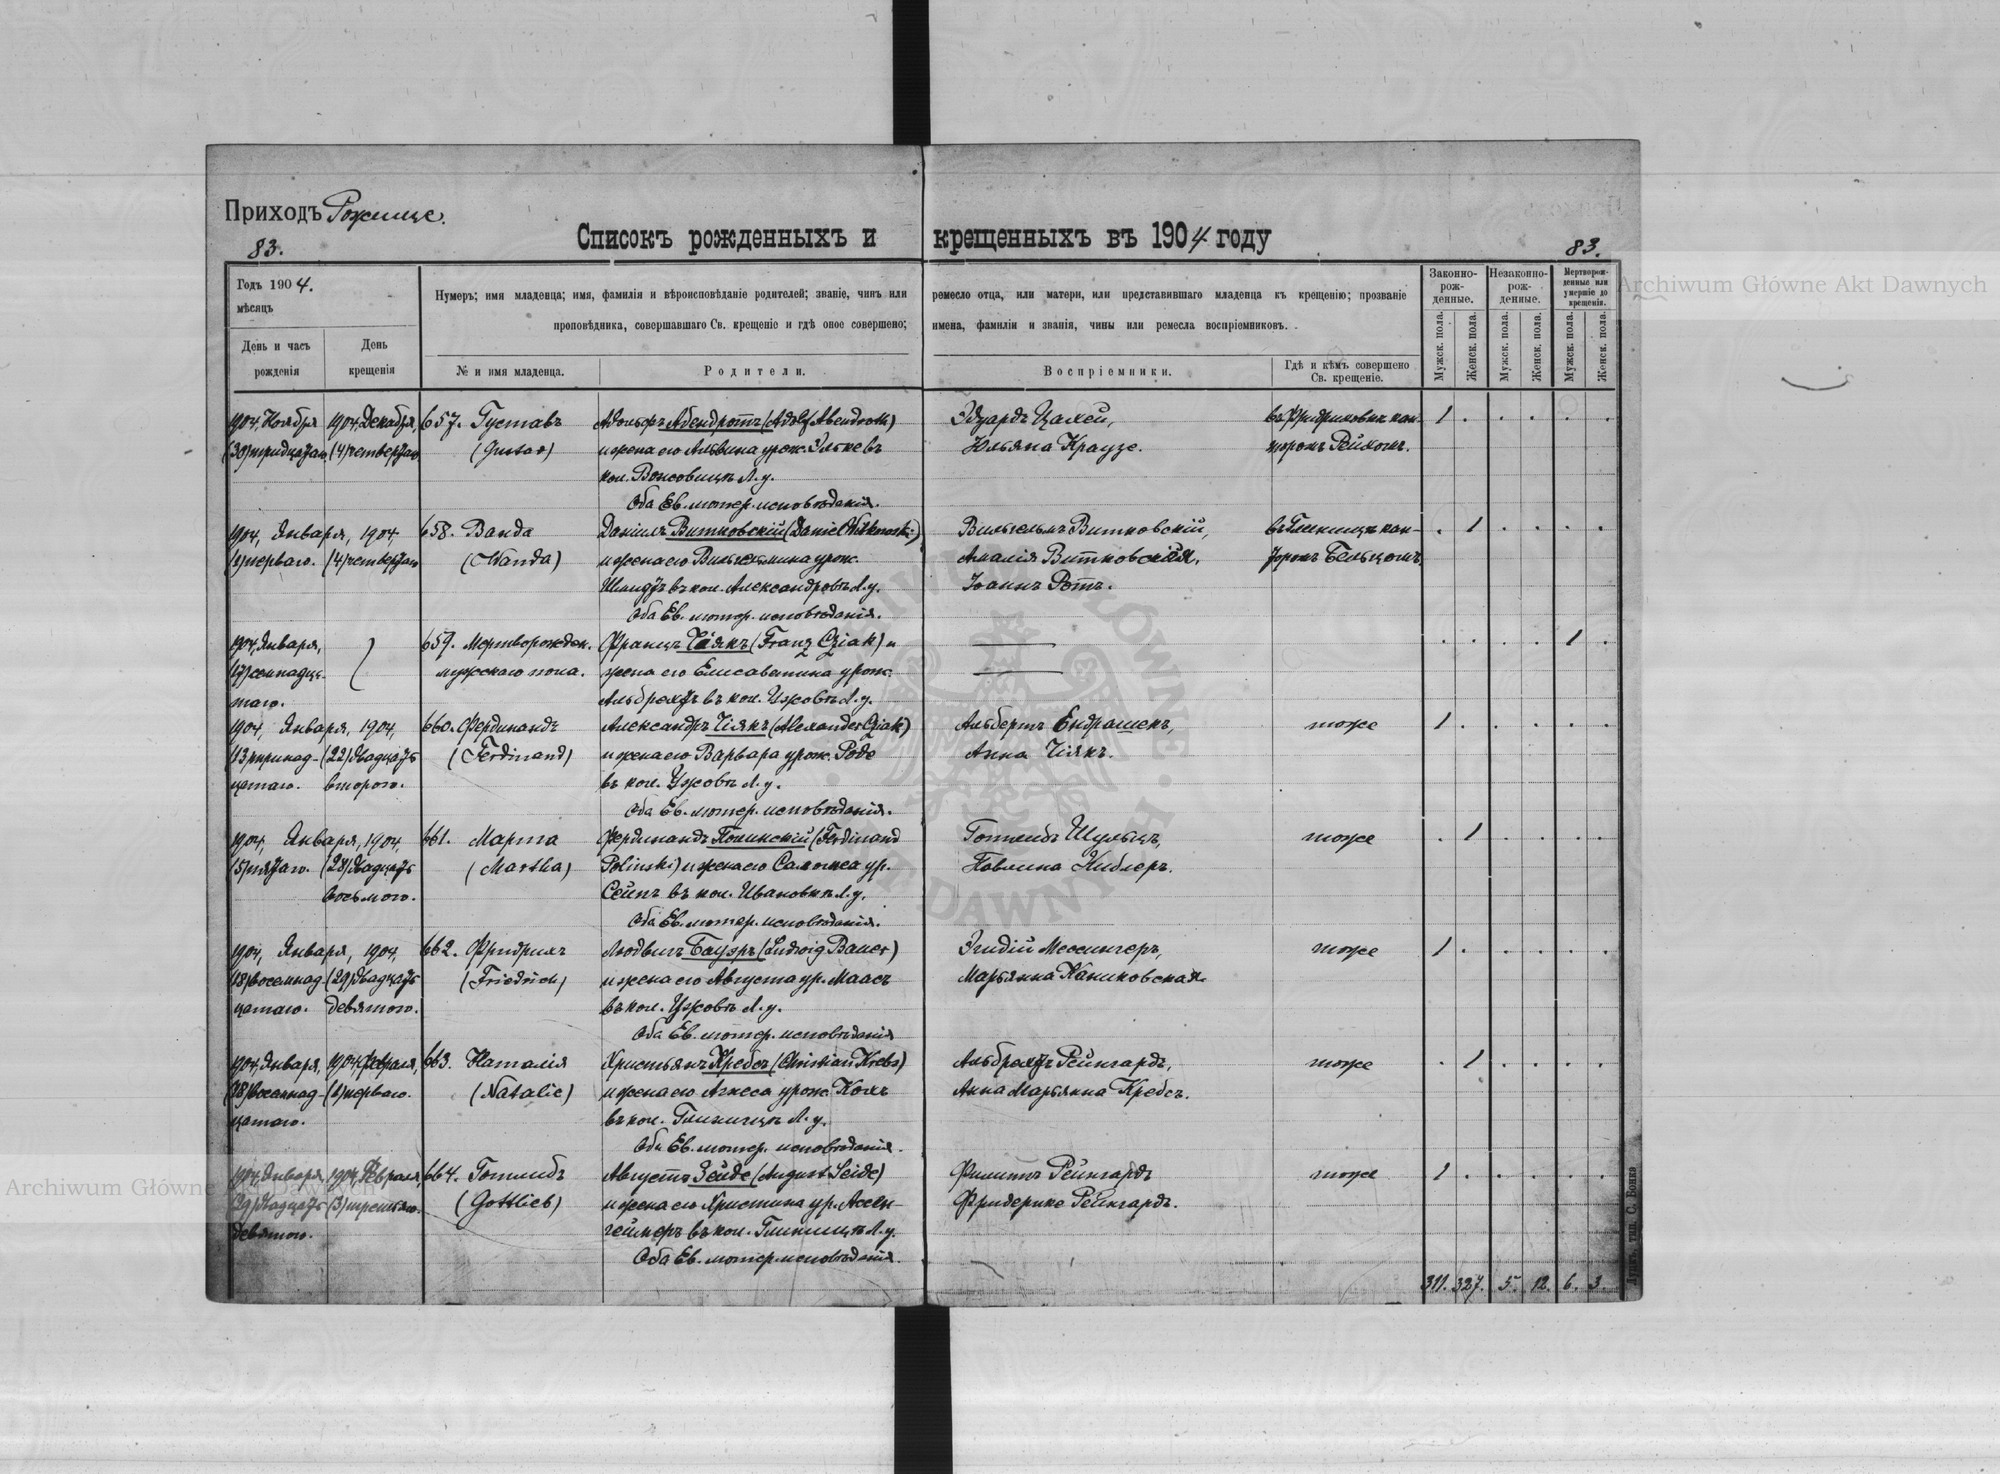 Приходъ Рожище.
83.
Списокъ рожденныхъ и крещенныхъ въ 1904 году
83.
Годъ 1904.
мѣсяцъ
День и часъ рожденія
День крещенія
Нумеръ; имя младенца; имя, фамилія и вѣроисповѣданіе родителей; званіе, чинъ или ремесло отца, или матери, или представившаго младенца къ крещенію; прозваніе
проповѣдника, совершавшаго Св. крещеніе и гдѣ оное совершено; имена, фамиліи и званія, чины или ремесла воспріемниковъ.
№ и имя младенца.
Родители.
Воспріемники.
Гдѣ и кѣмъ совершено Св. крещеніе.
Законно-рож-денные.
Незаконно-рож-денные.
Мертворож-денные или умершіе до крещенія.
Мужск. пола.
Женск. пола.
Мужск. пола.
Женск. пола.
Мужск. пола.
Женск. пола.
1904, Ноября 1904, Декабря, 657. Густавъ Адольфъ Абендротъ (Adolf Abendroth) Эдуардъ 1
(30) тридцатаго (4) четвертаго (Gustav) и жена его Альвина урож. въ Юльяна Краузе.
кол. Л. у.
Оба Ев. лютер. исповѣданія.
1904, Января, 1904, 658. Ванда Даніилъ Витковскій (Daniel Witkowski) Вильгельмъ Витковскій, 1
(1) перваго. (4) четвертаго (Wanda) и жена его Вильгельмина урож. Амалія Витковскія,
въ кол. Александровкѣ Л. у. Іоаннъ Ротъ.
Оба Ев. лютер. исповѣданія.
1904, Января, 659. Мертворожден. Францъ Чіякъ (Franz Cziak) и 1
(17) семнадца- мужскаго пола. жена его Елисаветина урож.
таго. Альбрехтъ въ кол. Ужовѣ Л. у.
1904, Января, 1904, 660. Фердинандъ Александръ Чіякъ (Alexander Cziak) Альбертъ Ендрашекъ, тоже 1
(13) тринад- (22) двадцать (Ferdinand) и жена его Варвара урож. Роде Анна Чіякъ.
цатаго. второго. въ кол. Ужовѣ Л. у.
Оба Ев. лютер. исповѣданія.
1904, Января, 1904, 661. Марта Фердинандъ Полинскій (Ferdinand Готлибъ Шульцъ, тоже 1
(5) пятаго. (28) двадцать (Martha) Polinski) и жена его Саломеа ур. Павлина Киблеръ.
восьмого. Сейпъ въ кол. Ивановкѣ Л. у.
Оба Ев. лютер. исповѣданія.
1904, Января, 1904, 662. Фридрихъ Людвигъ Бауэръ (Ludwig Bauer) Эгидій Мессингеръ, тоже 1
(18) восемнад- (29) двадцать (Friedrich) и жена его Августа ур. Маасъ Марьянна Каниковская.
цатаго. девятого. въ кол. Ужовѣ Л. у.
Оба Ев. лютер. исповѣданія
1904, Января, 1904, Февраля, 663. Наталія Христьянъ Кребсъ (Christian Krebs) Альбрехтъ Рейнгардъ, тоже 1
(18) восемнад- (1) перваго. (Natalie) и жена его Агнеса урож. въ Анна Марьянна Кребсъ.
цатаго. въ кол. Л. у.
Оба Ев. лютер. исповѣданія.
1904, Января, 1904, Февраля, 664. Готлибъ Августъ Зейде (August Seide) Филиппъ Рейнгардъ тоже 1
(29) двадцать (3) третьяго. (Gottlieb) и жена его Христина ур. Ассен- Фридерике Рейнгардъ.
девятого. геймеръ въ кол. Л. у.
Оба Ев. лютер. исповѣданія.
311. 327. 5. 12. 6. 3.
Archiwum Główne Akt Dawnych
Archiwum Główne Akt Dawnych